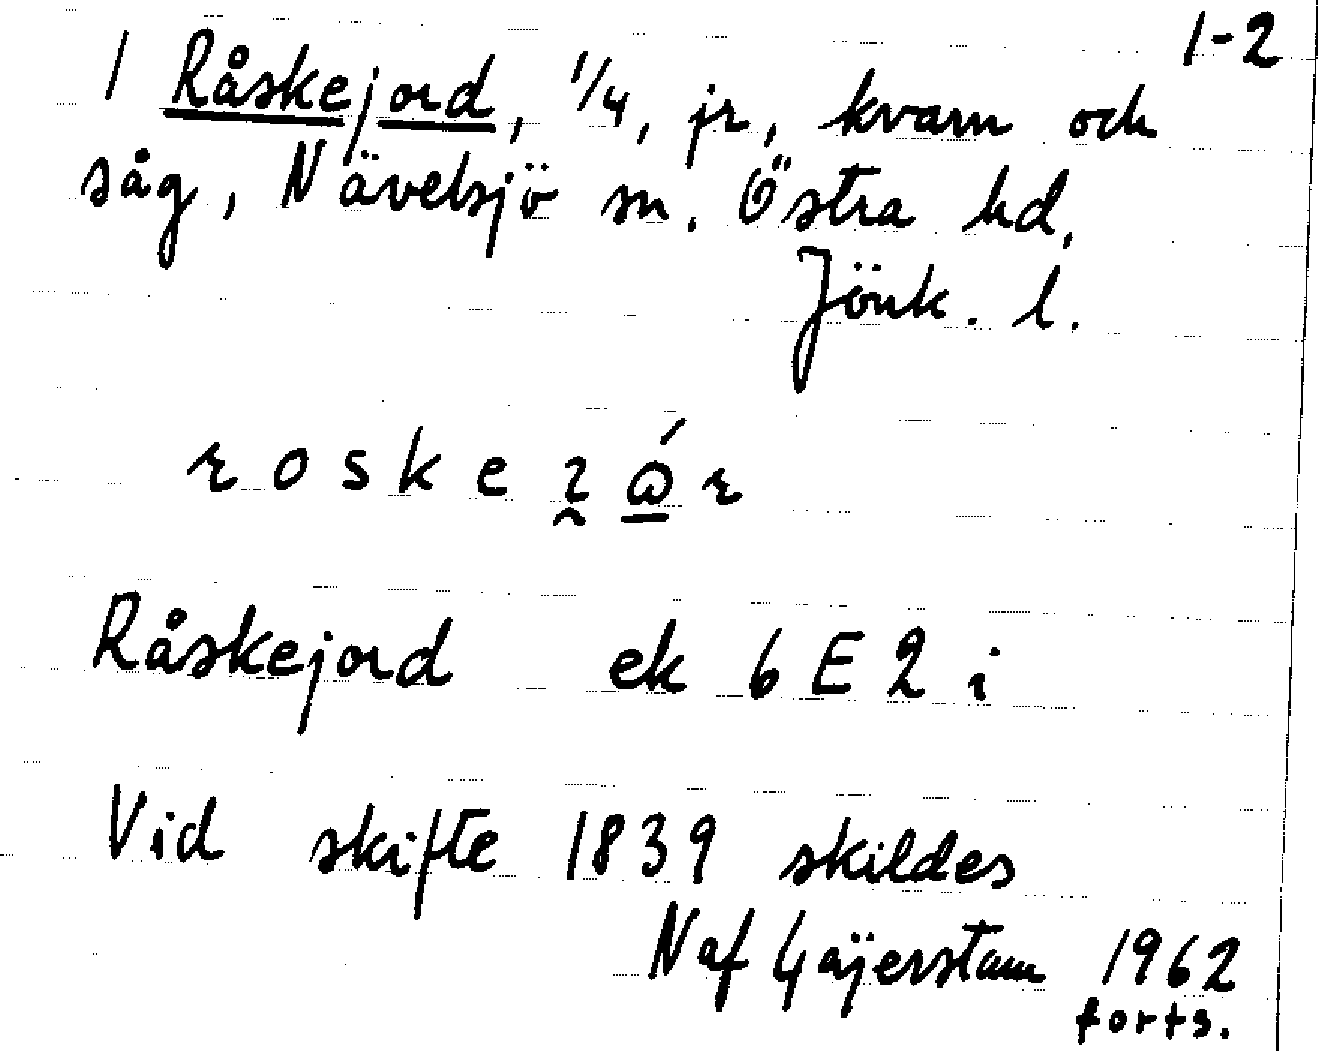 1-2
1 Råskejord, 1/4, jr, kvarn och
såg, Nävelsjö sn. Östra hd,
Jönk. l.
Råskejord ek 6E2i
Vid skifte 1839 skildes
N af Gaÿerstam 1962
forts.